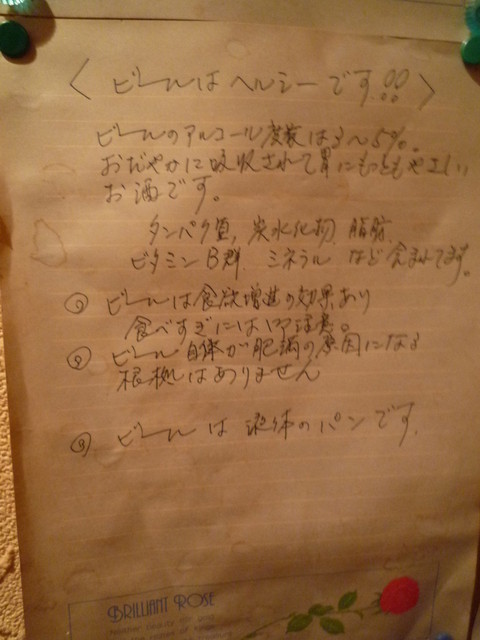 〈 ビールは ヘルシーです!! 〉
ビールのアルコール度数は3〜5%。
おだやかに吸収されて胃にもっともやさしい
お酒です。
タンパク質, 炭水化物, 脂肪,
ビタミンB群, ミネラル など含まれてます。
① ビールは食欲増進の効果あり
食べすぎにはご用意。
② ビール自体が肥満の原因になる
根拠はありません
③ ビールは 液体のパンです。
BRILLIANT ROSE